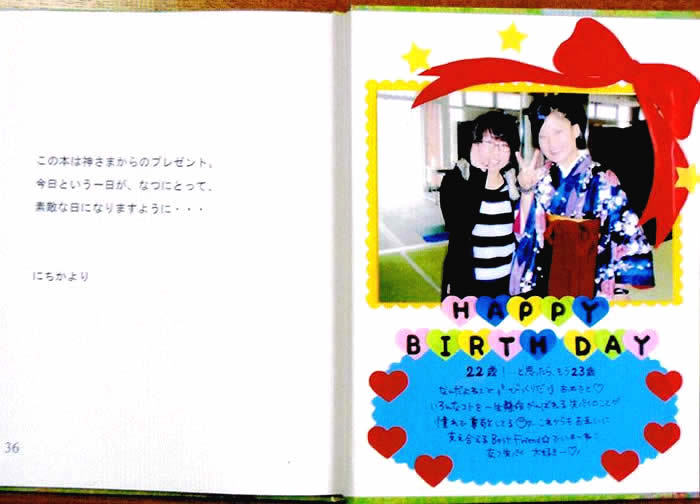 この本は神さまからのプレゼント。
今日という一日が、なつにとって、
素敵な日になりますように・・・
にちかより
36
HAPPY
BIRTHDAY
22歳！…と思ったら、もう23歳
おめでと♡
いろんなコトを一生懸命がんばれる
憧れで尊敬してる これからもお互いに
支え合える Best Friend☆でいよーね！
大好きー♡